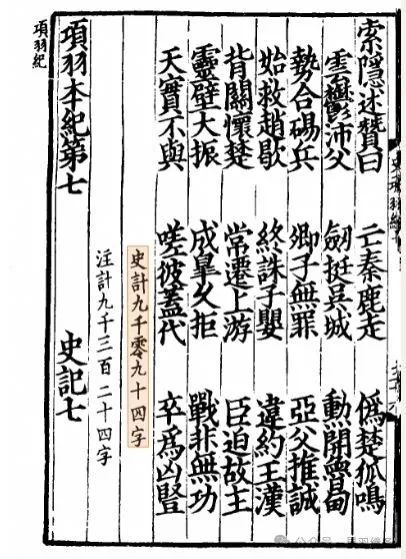 索隱述贊曰 亡秦鹿走 僞楚狐鳴
雲鬱沛父 劒挺吳城 勳開魯甸
勢合碭兵 卿子無罪 亞父推誠
始救趙歇 終誅子嬰 違約王漢
背關懷楚 常遷上游 臣迫故主
靈壁大振 成臯久拒 戰非無功
天實不與 嗟彼蓋代 卒爲凶豎
史計九千零九十四字
注計九千三百二十四字
項羽本紀第七 史記七
項羽紀
公众号